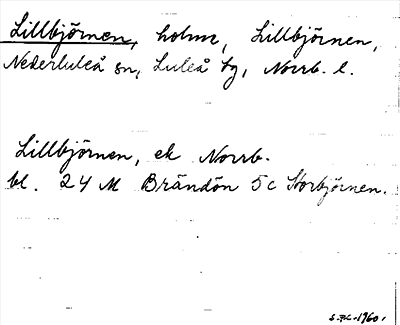 Lillbjörnen, holme, Lillbjörnen,
Nederluleå sn, Luleå tg, Norrb. l.
Lillbjörnen, ek Norrb.
bl. 24 M Brändön 5c Storbjörnen.
1960.